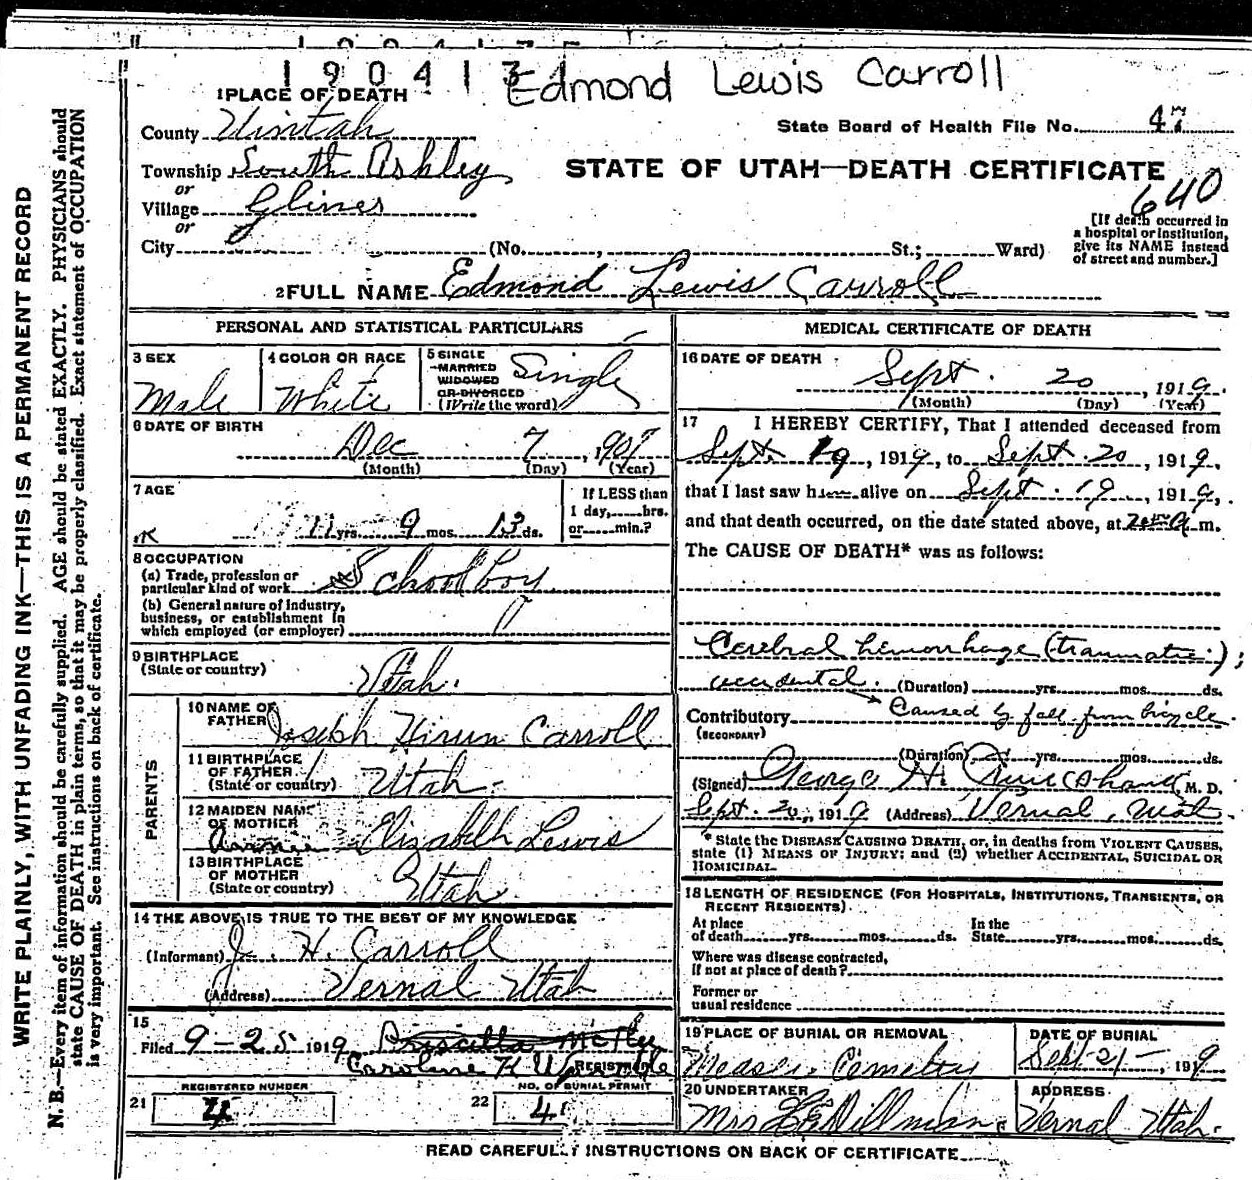 190413
Edmond Lewis Carroll
1 PLACE OF DEATH
County Uintah
State Board of Health File No. 47
Township South Ashley
STATE OF UTAH—DEATH CERTIFICATE
or
640
Village Glines
or
[If death occurred in a hospital or institution, give its NAME instead of street and number.]
City (No. , St.; Ward)
2 FULL NAME Edmond Lewis Carroll
PERSONAL AND STATISTICAL PARTICULARS
3 SEX
Male
4 COLOR OR RACE
White
5 SINGLE
MARRIED
WIDOWED
OR DIVORCED
(Write the word)
Single
6 DATE OF BIRTH
Dec 7, 1907
(Month) (Day) (Year)
7 AGE
11 yrs. 9 mos. 13 ds.
If LESS than
1 day, hrs.
or min.?
8 OCCUPATION
(a) Trade, profession or
particular kind of work School boy
(b) General nature of industry,
business, or establishment in
which employed (or employer)
9 BIRTHPLACE
(State or country) Utah.
PARENTS
10 NAME OF
FATHER Joseph Hirum Carroll
11 BIRTHPLACE
OF FATHER
(State or country) Utah.
12 MAIDEN NAME
OF MOTHER
Annie Elizabeth Lewis
13 BIRTHPLACE
OF MOTHER
(State or country) Utah
14 THE ABOVE IS TRUE TO THE BEST OF MY KNOWLEDGE
(Informant) J. H. Carroll
(Address) Vernal Utah
15
Filed 9-25 1919 Priscilla
Caroline K REGISTRAR
REGISTERED NUMBER
21
NO. OF BURIAL PERMIT
22 4
MEDICAL CERTIFICATE OF DEATH
16 DATE OF DEATH
Sept. 20, 1919
(Month) (Day) (Year)
17 I HEREBY CERTIFY, That I attended deceased from
Sept. 19, 1919, to Sept. 20, 1919,
that I last saw h alive on Sept. 19, 1919,
and that death occurred, on the date stated above, at m.
The CAUSE OF DEATH* was as follows:
Cerebral hemorrhage (traumatic);
accidental. (Duration) yrs. mos. ds.
Contributory Caused by fall from bicycle.
(SECONDARY)
(Duration) yrs. mos. ds.
(Signed) George H. Cruickshank, M. D.
Sept. 20, 1919 (Address) Vernal, Utah.
* State the DISEASE CAUSING DEATH, or, in deaths from VIOLENT CAUSES,
state (1) MEANS OF INJURY; and (2) whether ACCIDENTAL, SUICIDAL OR
HOMICIDAL.
18 LENGTH OF RESIDENCE (FOR HOSPITALS, INSTITUTIONS, TRANSIENTS, OR
RECENT RESIDENTS).
At place
of death yrs. mos. ds.
In the
State yrs. mos. ds.
Where was disease contracted,
If not at place of death?
Former or
usual residence
19 PLACE OF BURIAL OR REMOVAL
Cemetery
DATE OF BURIAL
Sept-21-, 1919
20 UNDERTAKER
Mrs Dillman
ADDRESS
Vernal Utah.
READ CAREFULLY INSTRUCTIONS ON BACK OF CERTIFICATE
WRITE PLAINLY, WITH UNFADING INK—THIS IS A PERMANENT RECORD
N. B.—Every item of information should be carefully supplied. AGE should be stated EXACTLY. PHYSICIANS should
state CAUSE OF DEATH in plain terms, so that it may be properly classified. Exact statement of OCCUPATION
is very important. See instructions on back of certificate.